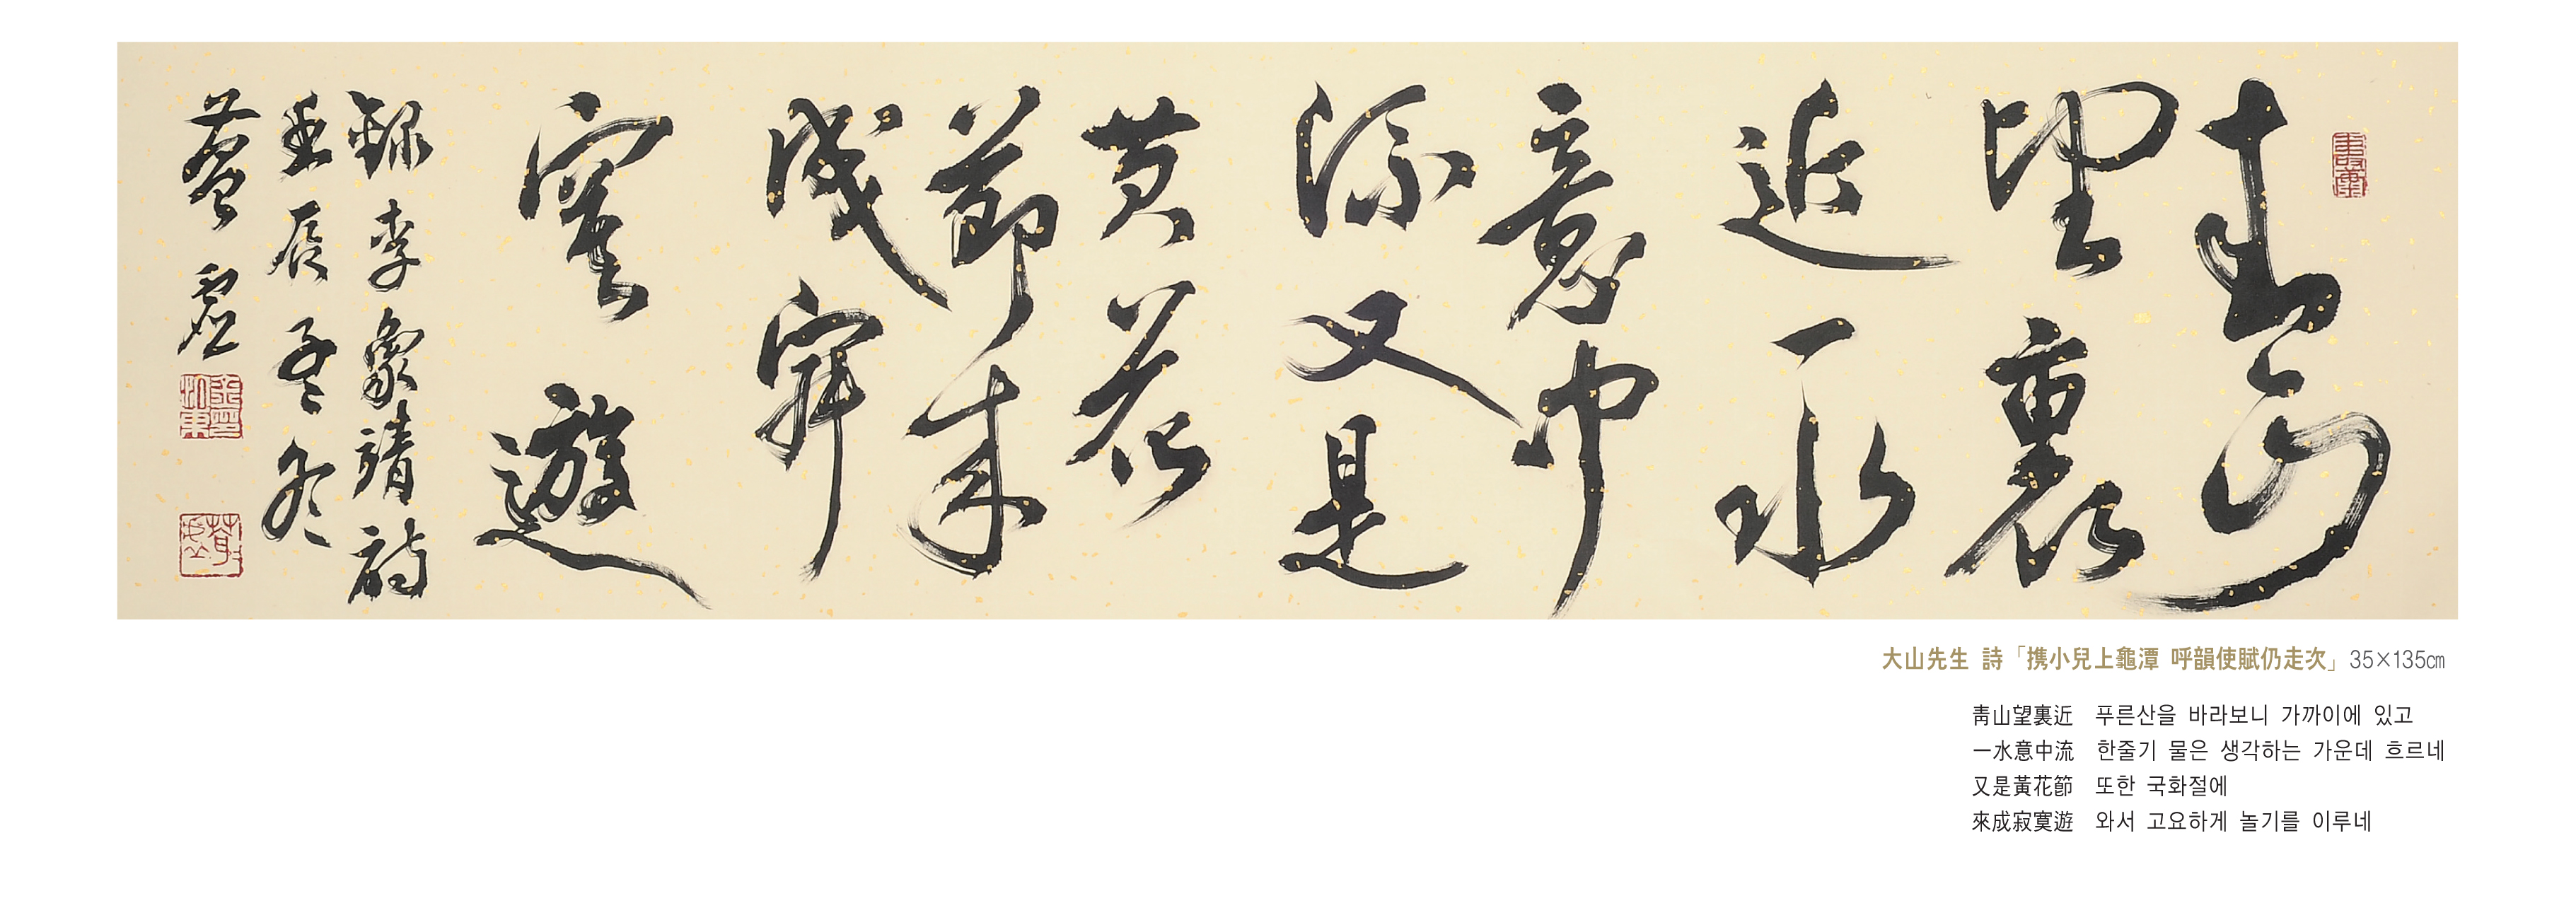 靑山
望裏
近一水
意中
流又是
黃花
節來
成寂
寞遊
錄李象靖詩
壬辰孟冬
大山先生 詩「携小兒上龜潭 呼韻使賦仍走次」 35×135㎝
靑山望裏近 푸른산을 바라보니 가까이에 있고
一水意中流 한줄기 물은 생각하는 가운데 흐르네
又是黃花節 또한 국화절에
來成寂寞遊 와서 고요하게 놀기를 이루네